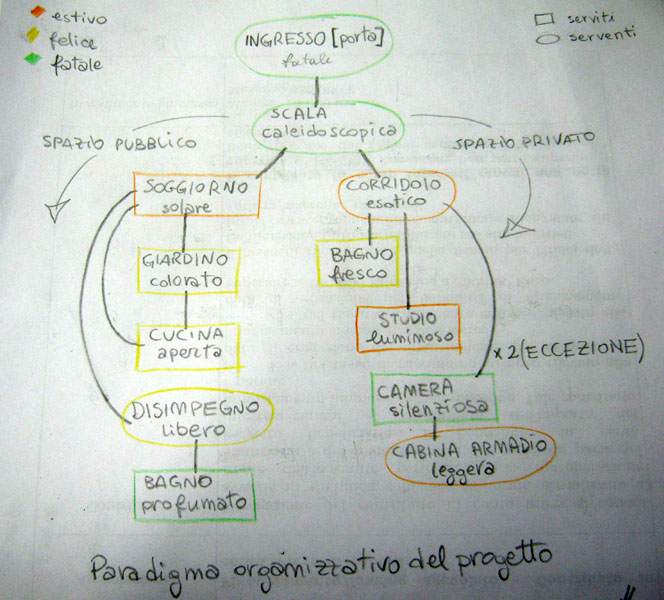 estivo
felice
fatale
serviti
serventi
INGRESSO [porta]
fatale
SCALA
caleidoscopica
SPAZIO PUBBLICO
SPAZIO PRIVATO
SOGGIORNO
solare
CORRIDOIO
esotico
GIARDINO
colorato
BAGNO
fresco
CUCINA
aperta
STUDIO
luminoso
x2 (ECCEZIONE)
CAMERA
silenziosa
DISIMPEGNO
libero
CABINA ARMADIO
leggera
BAGNO
profumato
Paradigma organizzativo del progetto